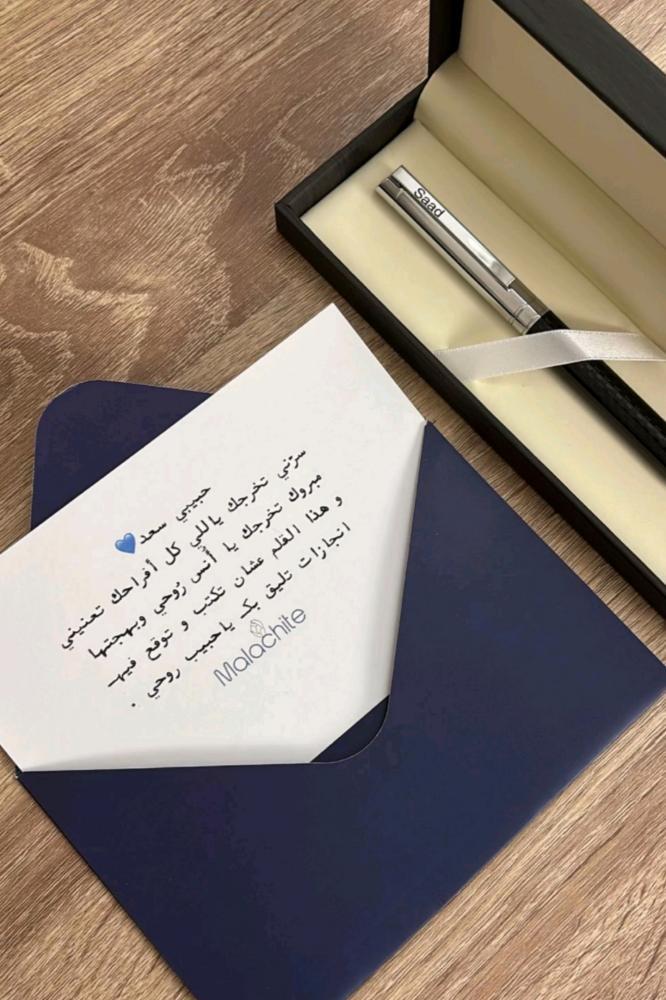 Saad
حبيبي سعد💙
سرّني تخرجك ياللي كل أفراحك تعنيني
مبروك تخرجك يا أُنس رُوحي وبهجتها
و هذا القلم عشان تكتب و توقع فيه
انجازات تليق بك ياحبيب روحي .
Malachite